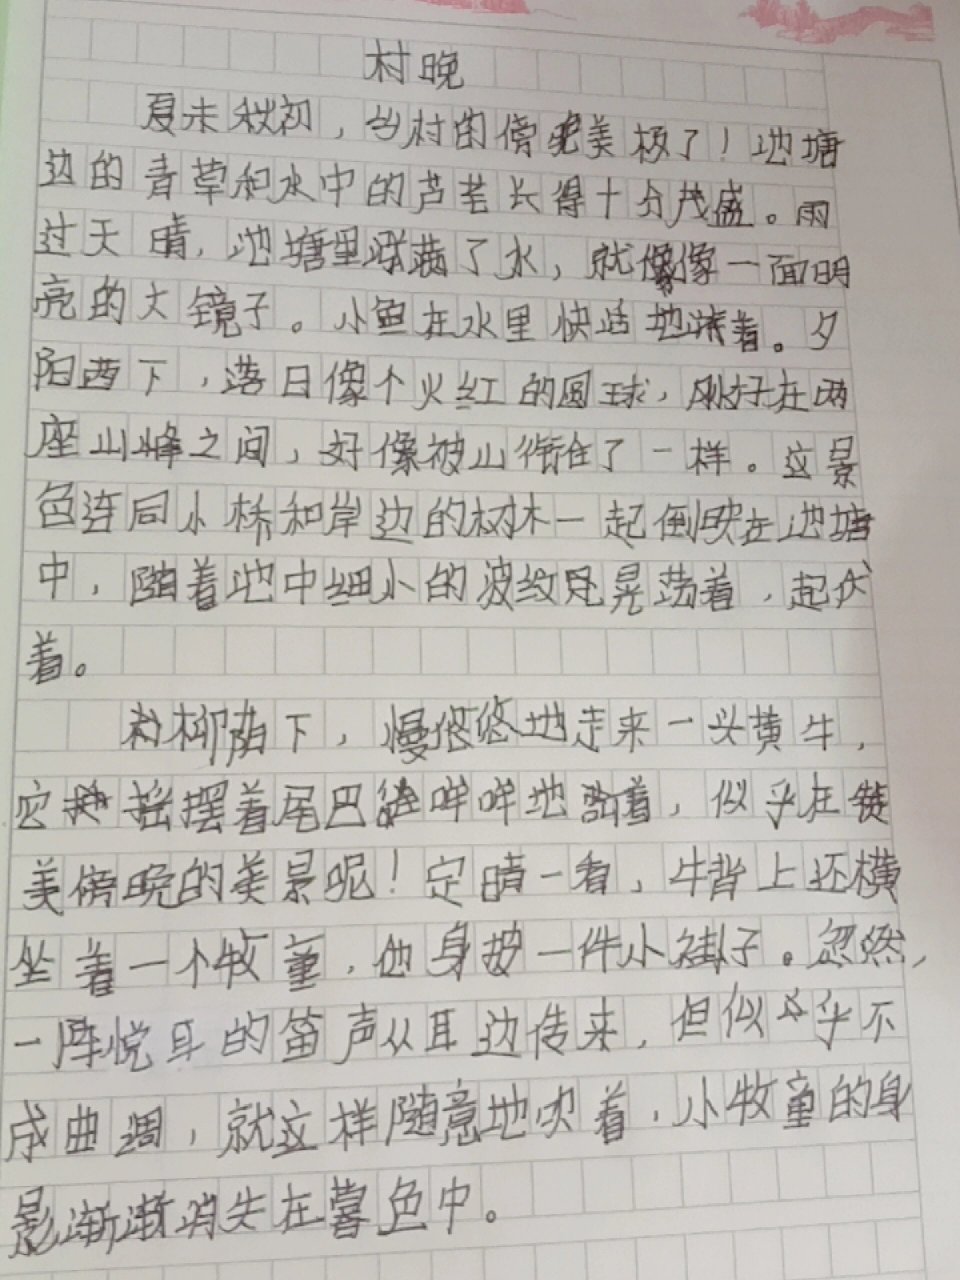 村晚
夏末秋初，乡村的傍晚美极了！池塘
边的青草和水中的芦苇长得十分茂盛。雨
过天晴，池塘里涨满了水，就像一面明
亮的大镜子。小鱼在水里快活地游着。夕
阳西下，落日像个火红的圆球，刚好在两
座山峰之间，好像被山衔住了一样。这景
色连同小桥和岸边的树木一起倒映在池塘
中，随着池中细小的波纹晃荡着，起伏
着。
村柳荫下，慢悠悠地走来一头黄牛，
它摇摆着尾巴哞哞地叫着，似乎在赞
美傍晚的美景呢！定晴一看，牛背上还横
坐着一个牧童，他身披一件小褂子。忽然，
一阵悦耳的笛声从耳边传来，但似乎不
成曲调，就这样随意地吹着，小牧童的身
影渐渐消失在暮色中。